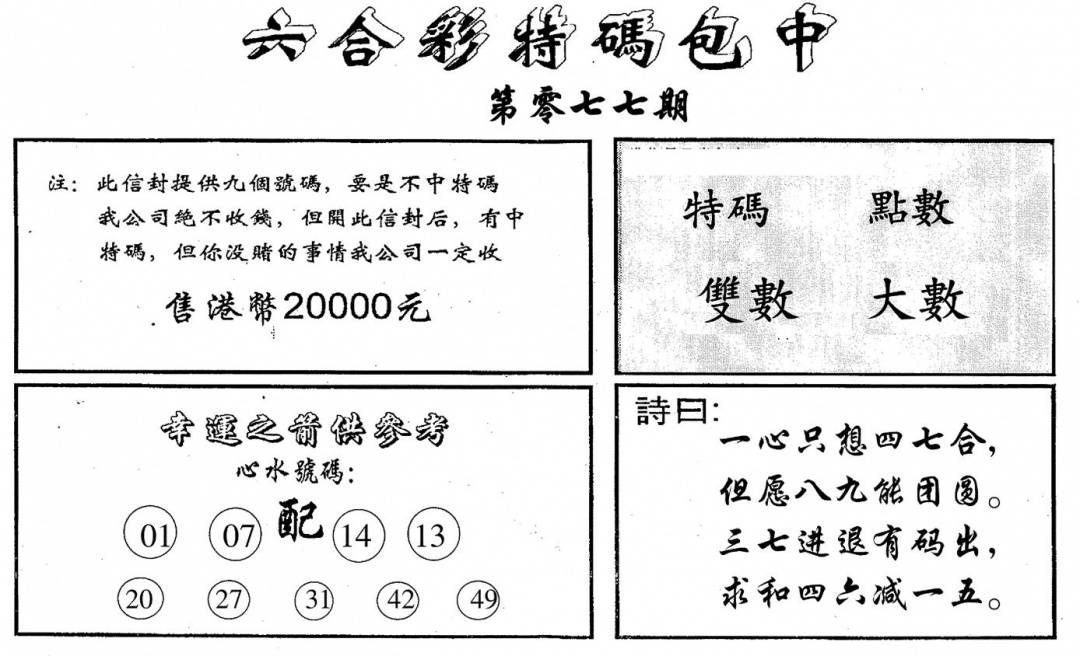 六合彩特碼包中
第零七七期
注：此信封提供九個號碼，要是不中特碼
我公司絕不收錢，但開此信封后，有中
特碼，但你没賭的事情我公司一定收
售港幣20000元
特碼 點數
雙數 大數
幸運之箭供參考
心水號碼：
01 07 配 14 13
20 27 31 42 49
詩曰：
一心只想四七合，
但愿八九能团圆。
三七进退有码出，
求和四六减一五。